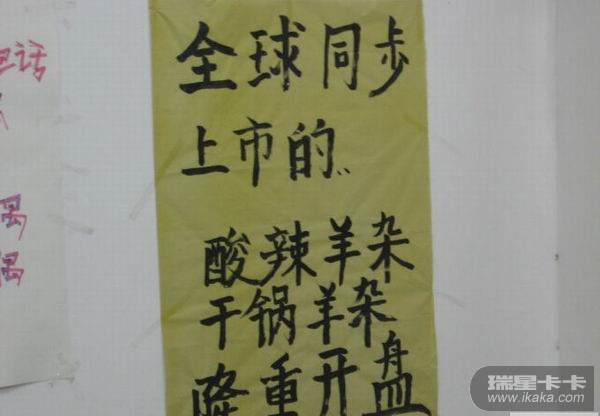 全球同步
上市的..
酸辣羊杂
干锅羊杂
隆重开盘
电话
偶
偶
瑞星卡卡
www.ikaka.com